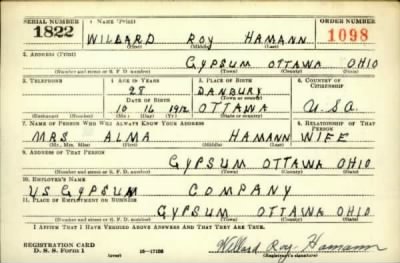 SERIAL NUMBER 1. NAME (Print) ORDER NUMBER
1822 WILLARD ROY HAMANN 1098
(First) (Middle) (Last)
2. ADDRESS (Print)
GYPSUM OTTAWA OHIO
(Number and street or R. F. D. number) (Town) (County) (State)
3. TELEPHONE 4. AGE IN YEARS 5. PLACE OF BIRTH 6. COUNTRY OF CITIZENSHIP
28 DANBURY
DATE OF BIRTH (Town or county)
10 16 1912 OTTAWA U.S.A.
(Exchange) (Number) (Mo.) (Day) (Yr.) (State or country)
7. NAME OF PERSON WHO WILL ALWAYS KNOW YOUR ADDRESS 8. RELATIONSHIP OF THAT PERSON
MRS ALMA HAMANN WIFE
(Mr., Mrs., Miss) (First) (Middle) (Last)
9. ADDRESS OF THAT PERSON
GYPSUM OTTAWA OHIO
(Number and street or R. F. D. number) (Town) (County) (State)
10. EMPLOYER'S NAME
US GYPSUM COMPANY
11. PLACE OF EMPLOYMENT OR BUSINESS
GYPSUM OTTAWA OHIO
(Number and street or R. F. D. number) (Town) (County) (State)
I AFFIRM THAT I HAVE VERIFIED ABOVE ANSWERS AND THAT THEY ARE TRUE.
REGISTRATION CARD
D. S. S. Form 1 (over) Willard Roy Hamann
(Registrant's signature)